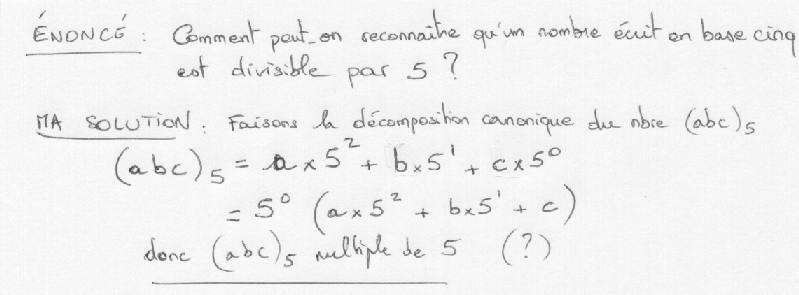 ÉNONCÉ : Comment peut-on reconnaître qu'un nombre écrit en base cinq
est divisible par 5 ?
MA SOLUTION : Faisons la décomposition canonique du nbre (abc)₅
(abc)₅ = a × 5² + b × 5¹ + c × 5⁰
= 5⁰ (a × 5² + b × 5¹ + c)
donc (abc)₅ multiple de 5 (?)